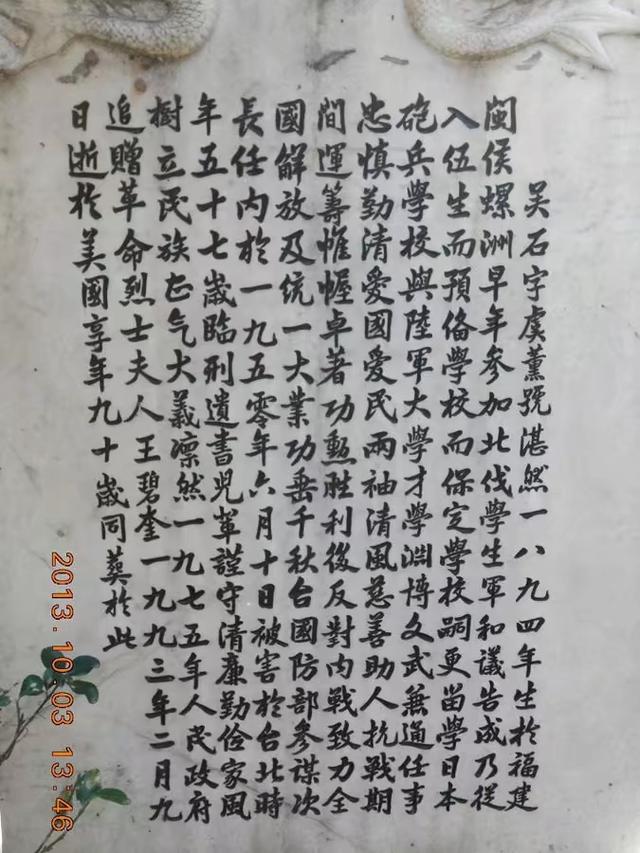 吴石字虞薰號湛然一八九四年生於福建
閩侯螺洲早年参加北伐學生軍和議告成乃從
入伍生而預俻學校而保定學校嗣更畄學日本
砲兵學校與陸軍大學才學淵博文武兼通任事
忠慎勤清愛國愛民兩袖清風慈善助人抗戰期
間運筹帷幄卓著功勲胜利後反對内戰致力全
國解放及统一大業功垂千秋台國防部参谋次
長任内於一九五零年六月十日被害於台北時
年五十七歲臨刑遺書兒輩謹守清廉勤俭家風
樹立民族正气大義凛然一九七五年人民政府
追贈革命烈士夫人王碧奎一九九三年二月九
日逝於美國享年九十歲同葬於此
2013.10.03 13:46